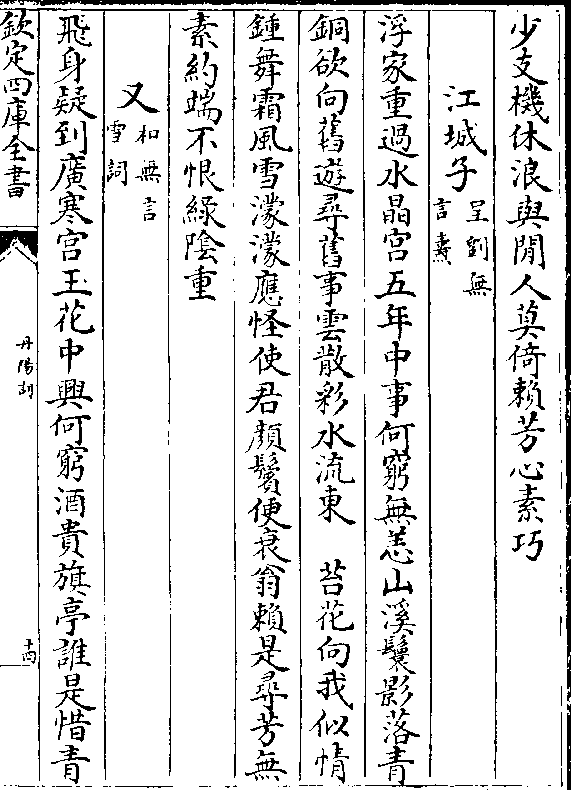 少支機休浪與閒人莫倚賴芳心素巧
江城子呈劉無言燾
浮家重過水晶宫五年中事何窮無恙山溪鬟影落青
銅欲向舊遊尋舊事雲散彩水流東　苔花向我似情
鍾舞霜風雪濛濛應怪使君顔鬢便衰翁賴是尋芳無
素約端不恨緑隂重
又和無言雪詞
飛身疑到廣寒宫玉花中興何窮酒貴旗亭誰是惜青
欽定四庫全書
丹陽詞
十四